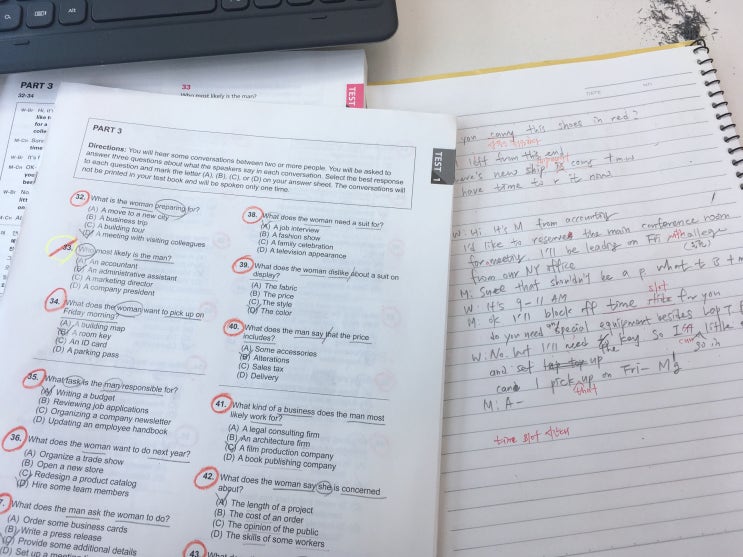 Alt
PART 3
32-34
33
Who most likely is the man?
TEST
W-Br Hi, it's
like t
for a
colle
M-Cn Sure
time
W-Br It's f
M-Cn OK
you
bee
W-Br No
lin
get
PART 3
TEST 1
Directions: You will hear some conversations between two or more people. You will be asked to
answer three questions about what the speakers say in each conversation. Select the best response
to each question and mark the letter (A), (B), (C), or (D) on your answer sheet. The conversations will
not be printed in your test book and will be spoken only one time.
32. What is the woman preparing for?
(A) A move to a new city
(B) A business trip
(C) A building tour
(D) A meeting with visiting colleagues
33. Who most likely is the man?
(A) An accountant
(B) An administrative assistant
(C) A marketing director
(D) A company president
34. What does the woman want to pick up on
Friday morning?
(A) A building map
(B) A room key
(C) An ID card
(D) A parking pass
35. What task is the man responsible for?
(A) Writing a budget
(B) Reviewing job applications
(C) Organizing a company newsletter
(D) Updating an employee handbook
36. What does the woman want to do next year?
(A) Organize a trade show
(B) Open a new store
(C) Redesign a product catalog
(D) Hire some team members
7. What does the man ask the woman to do?
(A) Order some business cards
(B) Write a press release
(C) Provide some additional details
(D) Set up a meeting
38. What does the woman need a suit for?
(A) A job interview
(B) A fashion show
(C) A family celebration
(D) A television appearance
39. What does the woman dislike about a suit on
display?
(A) The fabric
(B) The price
(C) The style
(D) The color
40. What does the man say that the price
includes?
(A) Some accessories
(B) Alterations
(C) Sales tax
(D) Delivery
41. What kind of a business does the man most
likely work for?
(A) A legal consulting firm
(B) An architecture firm
(C) A film production company
(D) A book publishing company
42. What does the woman say she is concerned
about?
(A) The length of a project
(B) The cost of an order
(C) The opinion of the public
(D) The skills of some workers
43. What
DATE
you carry this shoes in red?
left from the end
new ship is comg tmw
have time to r it now
W: Hi it's M from accounting
I'd like to reserve the main conference room
for a meeting I'll be leading on Fri with collegue
from our NY office
M: Sure that shouldn't be a p what t
W: It's 9-11 AM
slot
M: ok I'll block off time for you
do you need special equipment besides
W: No. but I'll need the key so I can little
go in
and set up
can I pick up on Fri-M?
that
M: A-
time slot